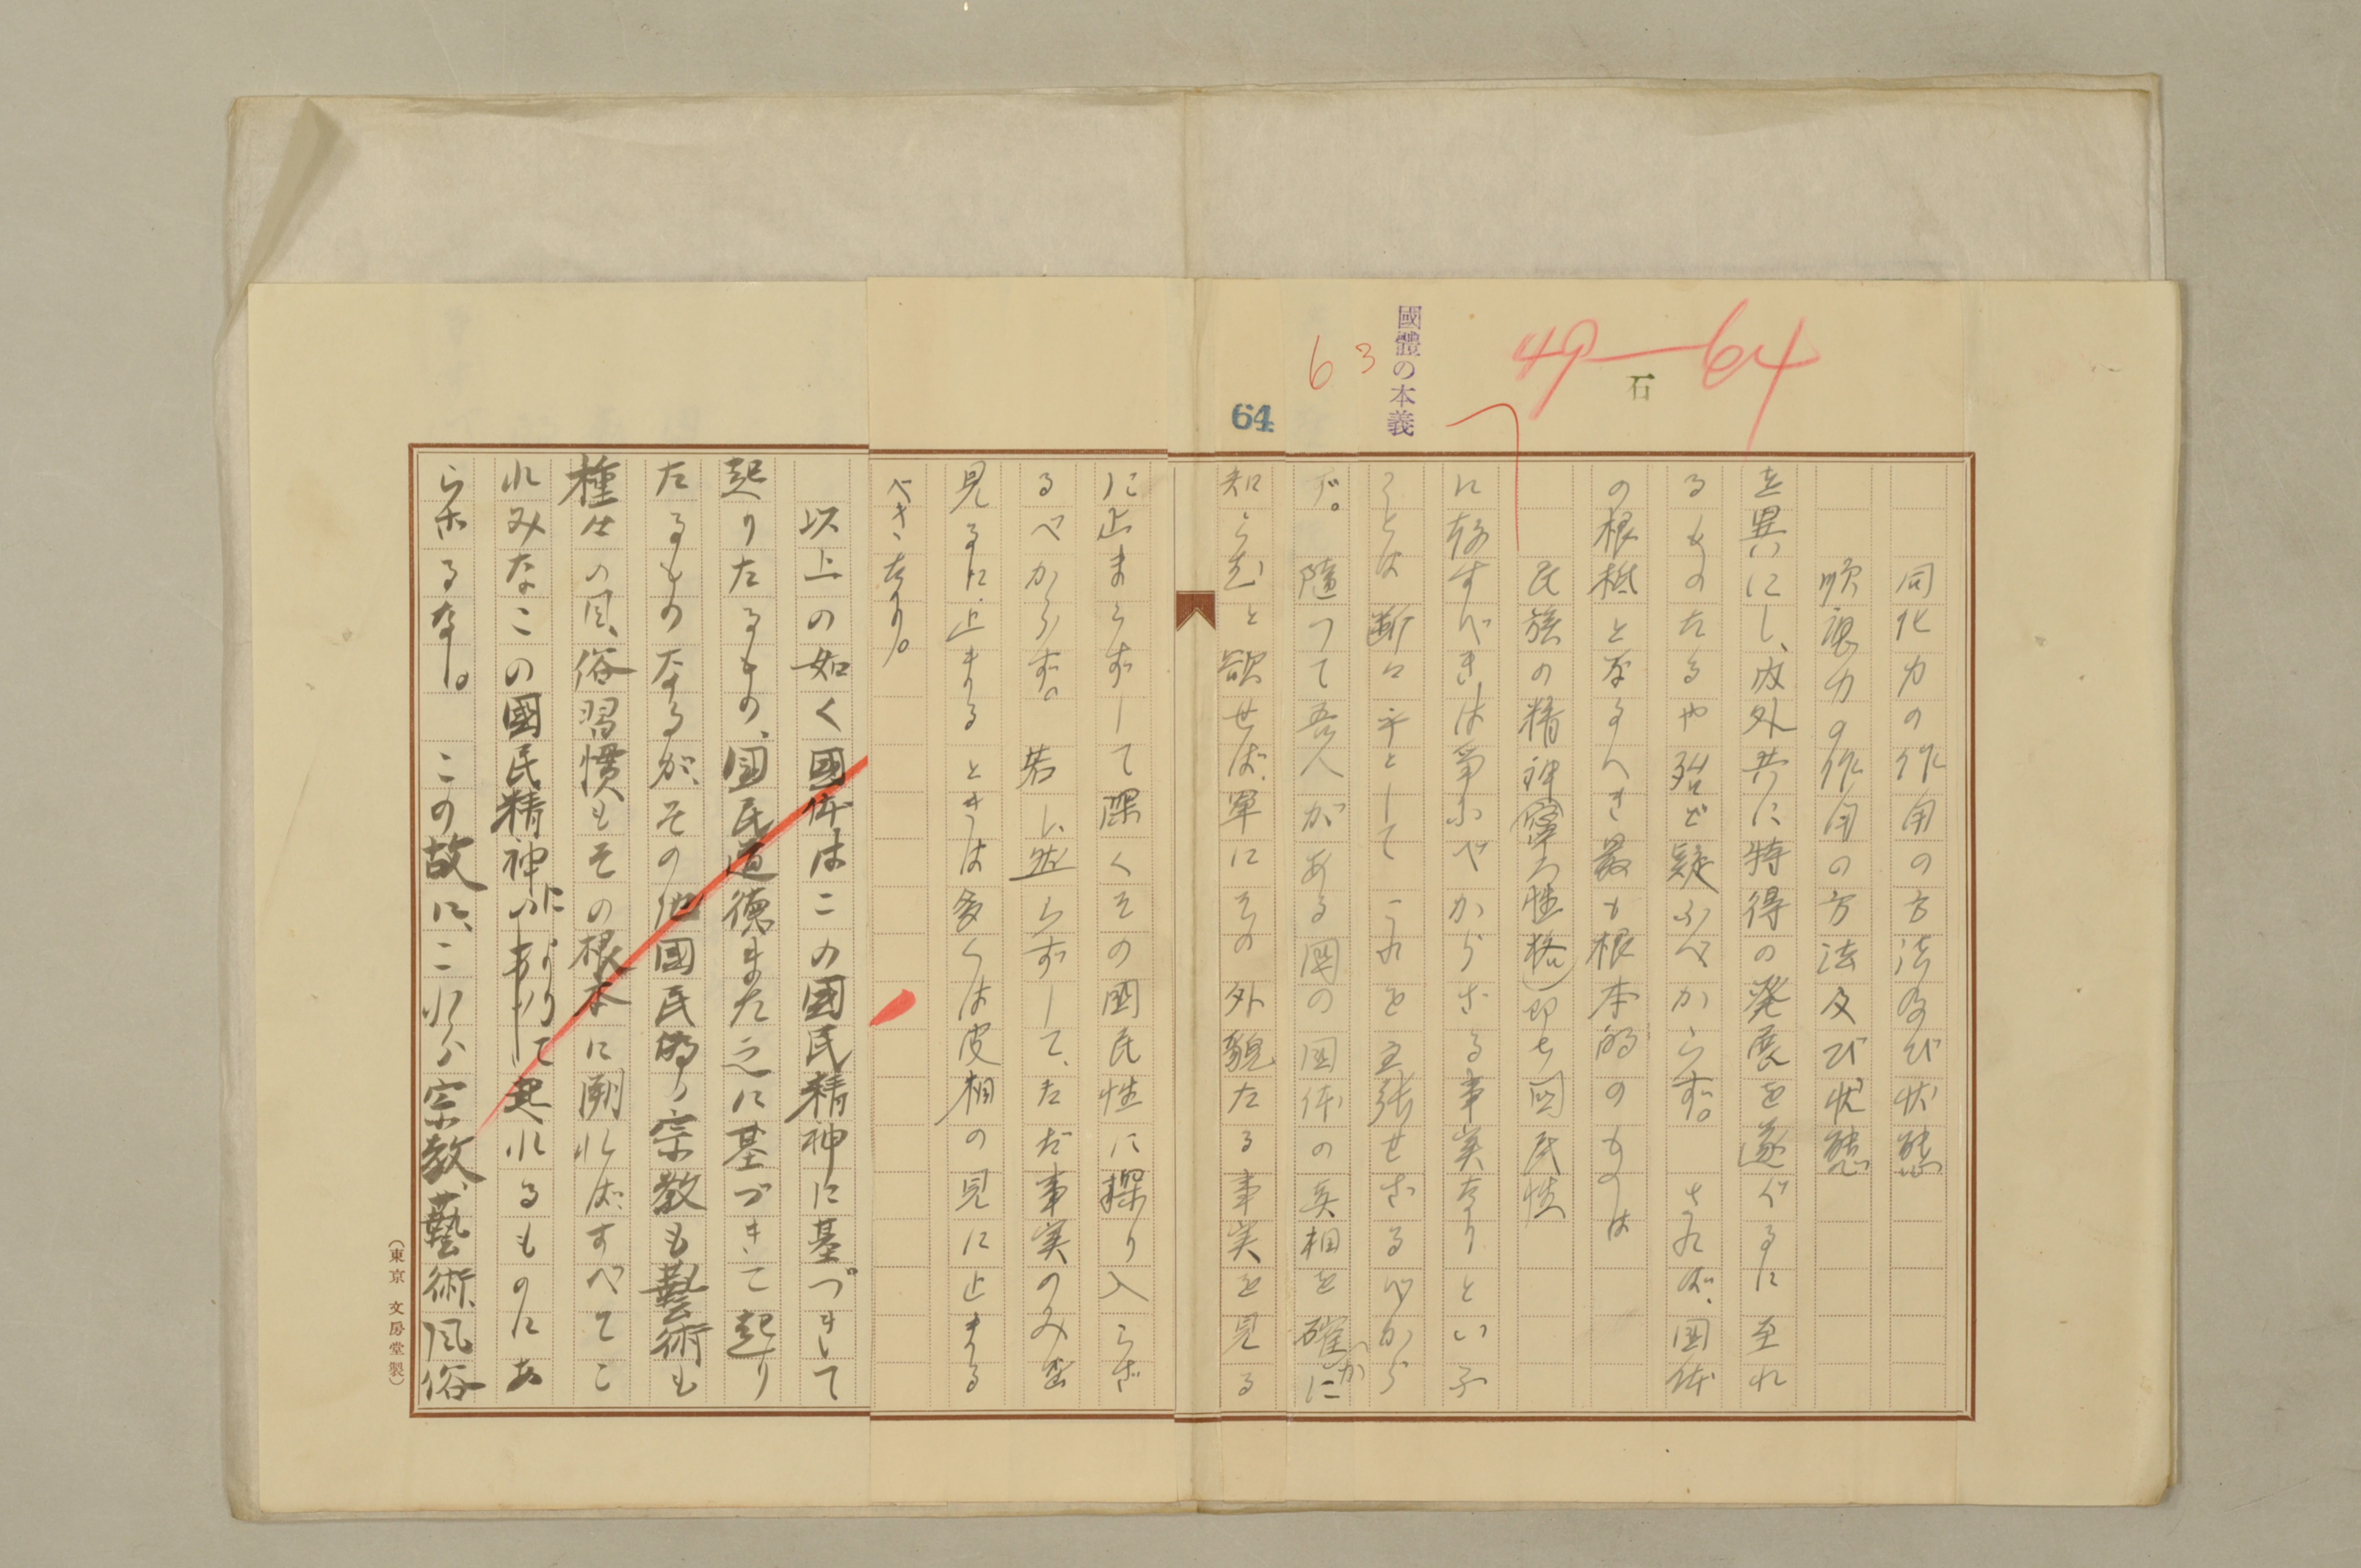 49―64
石
國體の本義
63
64
同化力の作用の方法及び状態
順応力の作用の方法及び状態
を異にし、内外共に特得の発展を遂ぐるに至れ
るものたるや殆ど疑ふべからず。さればヾ、国体
の根柢となるべき最も根本的のものは
民族の精神(寧ろ性格)即ち国民性
に存すべきは争ふべからざる事実なりといふ
ことは断々乎としてこれを主張せざるべから
ず。随つて吾人がある国の国体の真相を確かに
知らむと欲せば、単にその外貌たる事実を見る
に止まらずして深くその國民性に探り入らざ
るべからず。若し然らずして、ただ事実のみ
見るに止まるときは多くは皮相の見に止まる
べきなり。
以上の如く國体はこの國民精神に基づきて
起りたるもの、國民道徳また之に基づきて起り
たるものなるが、その他國民的の宗教も藝術も
種々の風俗習慣もその根本に溯ればすべてこ
れみなこの國民精神によりて起れるものにあ
らざるなし。この故に、これら宗教、藝術、風俗
(東京 文房堂製)